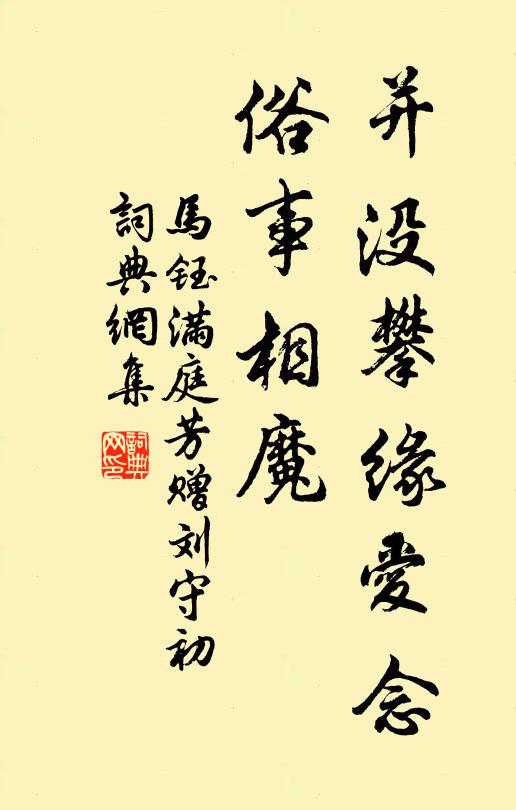 并没攀缘爱念
俗事相魔
馬鈺满庭芳赠刘守初
詞典網集
詞典网印